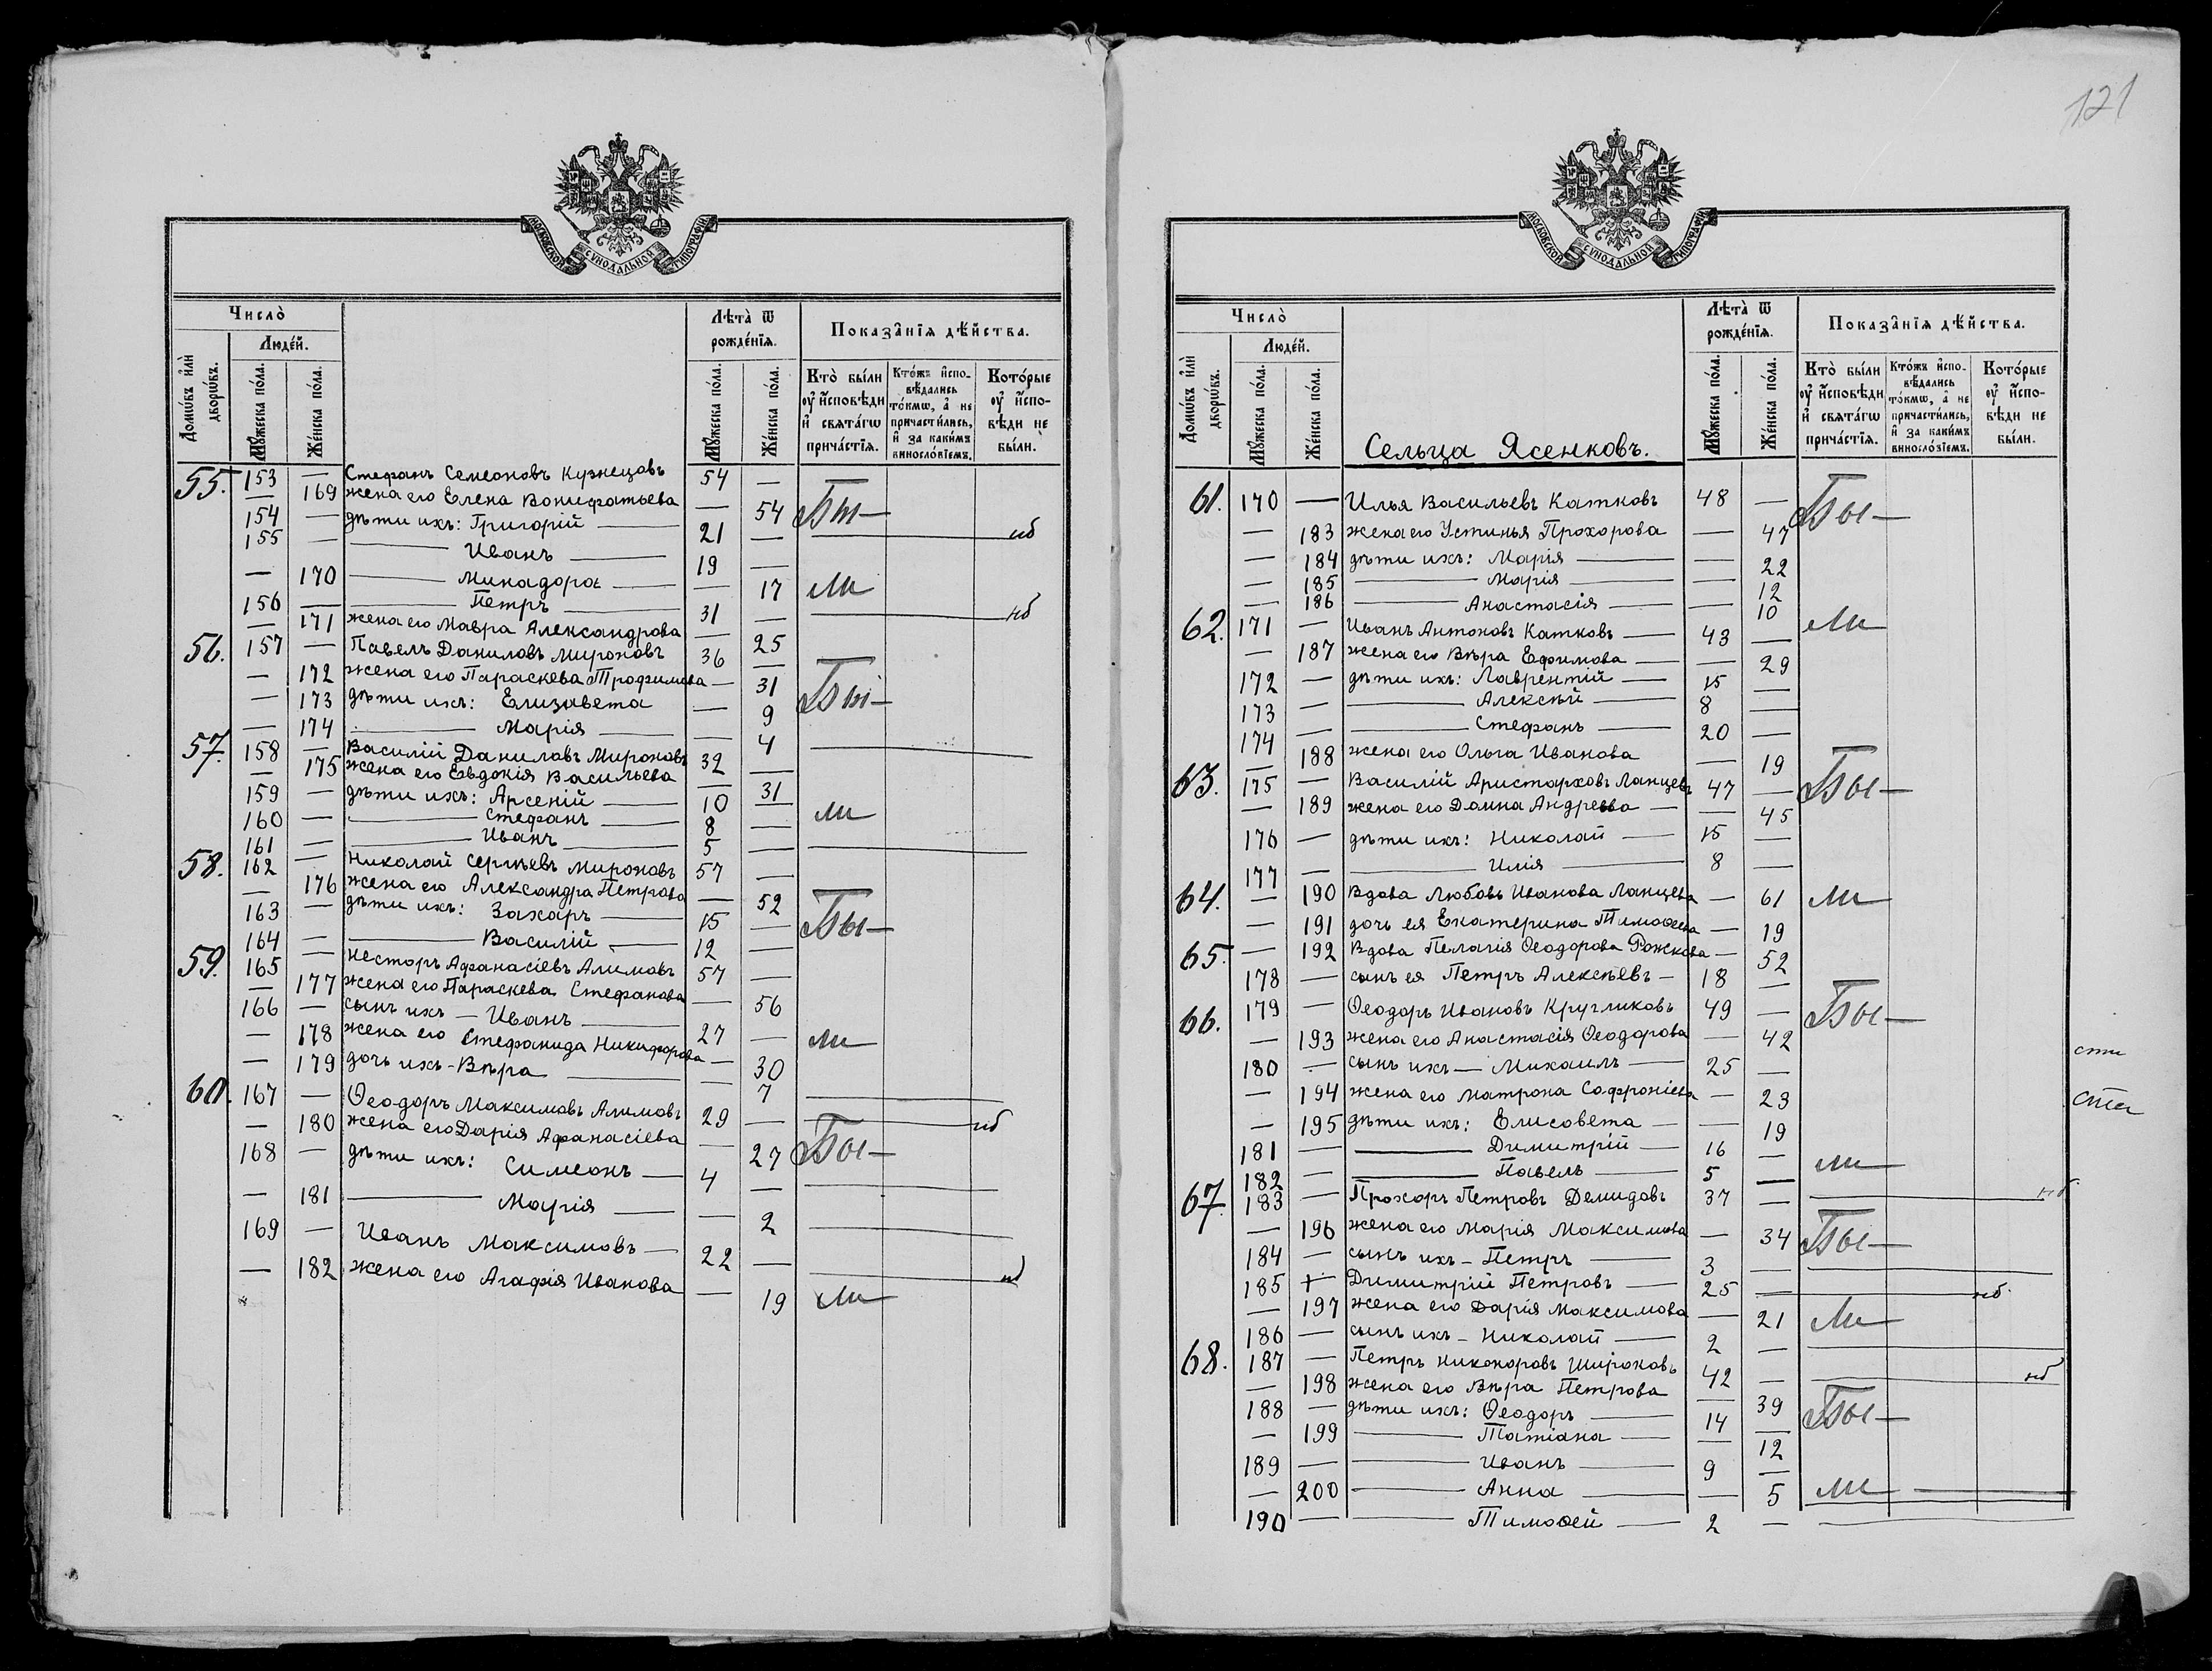 121
МОСКОВСКОЙ СѴНОДАЛЬНОЙ ТИПОГРАФІИ
Число̀
Лѣта̀ ѿ рожде́нїѧ.
Показа̑нїѧ дѣ́йства.
Домѡ́въ и҆лѝ дворѡ́въ.
Люде́й.
Мꙋ́жеска по́ла.
Же́нска по́ла.
Мꙋ́жеска по́ла.
Же́нска по́ла.
Кто̀ бы́ли ᲂу҆ и҆́сповѣди и҆ свѧта́гѡ прича́стїѧ.
Кто́жъ и҆спо-вѣ́дались то́кмѡ, а҆ не причасти́лись, и҆ за каки́мъ виносло́вїемъ.
Кото́рые ᲂу҆ и҆́спо-вѣди не бы́ли.
55. 153 — Стефанъ Семеоновъ Кузнецовъ 54 —
— 169 жена его Елена Вонифатьева — 54 Бы—
154 — дѣти ихъ: Григорій 21 — нб
155 — Иванъ 19 —
— 170 Минадора — 17 ли
156 — Петръ 31 — нб
— 171 жена его Мавра Александрова — 25
56. 157 — Павелъ Даниловъ Мироновъ 36 —
— 172 жена его Параскева Трофимова — 31 Бы—
— 173 дѣти ихъ: Елизавета — 9
— 174 Марія — 4
57. 158 — Василій Даниловъ Мироновъ 32 —
— 175 жена его Евдокія Васильева — 31
159 — дѣти ихъ: Арсеній 10 —
160 — Стефанъ 8 — ли
161 — Иванъ 5 —
58. 162 — Николай Сергѣевъ Мироновъ 57 —
— 176 жена его Александра Петрова — 52
163 — дѣти ихъ: Захаръ 15 — Бы—
164 — Василій 12 —
59. 165 — Несторъ Афанасіевъ Алимовъ 57 —
— 177 жена его Параскева Стефанова — 56
166 — сынъ ихъ — Иванъ 27 —
— 178 жена его Стефанида Никифорова — 30 ли
— 179 дочь ихъ - Вѣра — 7
60. 167 — Ѳеодоръ Максимовъ Алимовъ 29 — нб
— 180 жена его Дарія Афанасіева — 27 Бы—
168 — дѣти ихъ: Симеонъ 4 —
— 181 Марія — 2
169 — Иванъ Максимовъ 22 — нб
— 182 жена его Агафія Иванова — 19 ли
МОСКОВСКОЙ СѴНОДАЛЬНОЙ ТИПОГРАФІИ
Число̀
Лѣта̀ ѿ рожде́нїѧ.
Показа̑нїѧ дѣ́йства.
Домѡ́въ и҆лѝ дворѡ́въ.
Люде́й.
Мꙋ́жеска по́ла.
Же́нска по́ла.
Мꙋ́жеска по́ла.
Же́нска по́ла.
Кто̀ бы́ли ᲂу҆ и҆́сповѣди и҆ свѧта́гѡ прича́стїѧ.
Кто́жъ и҆спо-вѣ́дались то́кмѡ, а҆ не причасти́лись, и҆ за каки́мъ виносло́вїемъ.
Кото́рые ᲂу҆ и҆́спо-вѣди не бы́ли.
Сельца Ясенковъ.
61. 170 — Илья Васильевъ Катковъ 48 — Бы—
— 183 жена его Устинья Прохорова — 47
— 184 дѣти ихъ: Марія — 22
— 185 Марія — 12
— 186 Анастасія — 10
62. 171 — Иванъ Антоновъ Катковъ 43 — ли
— 187 жена его Вѣра Ефимова — 29
172 — дѣти ихъ: Лаврентій 15 —
173 — Алексѣй 8 —
174 — Стефанъ 20 —
— 188 жена его Ольга Иванова — 19
63. 175 — Василій Аристарховъ Ланцевъ 47 — Бы—
— 189 жена его Домна Андреева — 45
176 — дѣти ихъ: Николай 15 —
177 — Илія 8 —
64. — 190 Вдова Любовь Иванова Ланцева — 61 ли
— 191 дочь ея Екатерина Тимоѳеева — 19
65. — 192 Вдова Пелагія Ѳеодорова Рожкова — 52
178 — сынъ ея Петръ Алексѣевъ 18 —
66. 179 — Ѳеодоръ Ивановъ Кругликовъ 49 — Бы—
— 193 жена его Анастасія Ѳеодорова — 42
180 — сынъ ихъ — Михаилъ 25 —
— 194 жена его Матрона Софроніева — 23
— 195 дѣти ихъ: Елисовета — 19
181 — Димитрій 16 —
182 — Павелъ 5 — ли
67. 183 — Прохоръ Петровъ Демидовъ 37 — нб
— 196 жена его Марія Максимова — 34 Бы—
184 — сынъ ихъ - Петръ 3 —
185 + Димитрій Петровъ 25 — нб.
— 197 жена его Дарія Максимова — 21 ли
186 — сынъ ихъ - Николай 2 —
68. 187 — Петръ Никоноровъ Широковъ 42 — нб
— 198 жена его Вѣра Петрова — 39
188 — дѣти ихъ: Ѳеодоръ 14 — Бы—
— 199 Татіана — 12
189 — Иванъ 9 —
— 200 Анна — 5 ли
190 — Тимоѳей 2 —